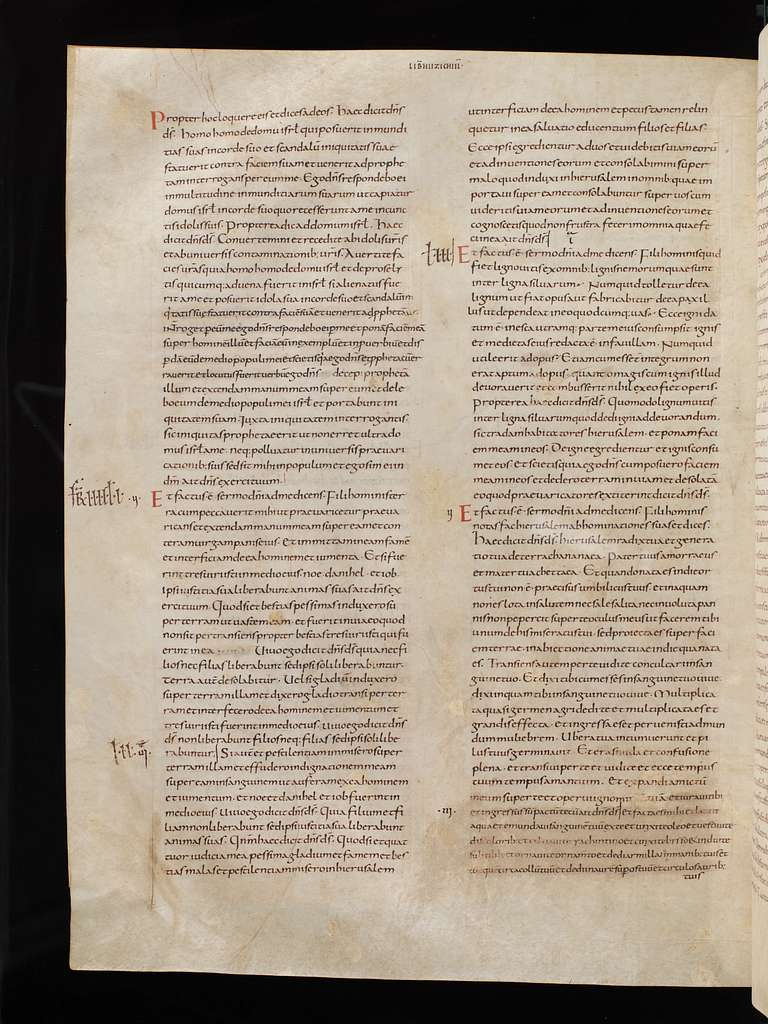 Propter hoc loquere eis et dices ad eos. Haec dicit dn̄s
ds̄. homo homo de domu isrl̄ qui posuerit inmundi
tias suas in corde suo et scandalū iniquitatis suae
statuerit contra faciem suam et venerit ad prophe
tam interrogans per eum me. Ego dn̄s respondebo ei
in multitudine inmunditiarum suarum ut capiatur
domus isrl̄ in corde suo quo recesserunt a me in cunc
tis idolis suis. Propterea dic ad domum isrl̄. Haec
dicit dn̄s ds̄. Convertemini et recedite ab idolis ur̄is
et ab universis contaminationib; ur̄is. Avertite fa
cies ur̄as quia homo homo de domu isrl̄ et de proselȳ
tis quicumq; advena fuerit in isrl̄ si alienatus fue
rit a me et posuerit idola sua in corde suo et scandalū in
illum et extendam manum meam super eum et dele
bo eum de medio populi mei isrl̄ et portabunt ini
quitatem suam. Juxta iniquitatem interrogantis.
sic iniquitas prophetae erit ut non erret ultra do
mus isrl̄ a me. neq; polluatur in universis praevari
cationib; suis sed sit mihi in populum et ego sim ei in
dm̄ ait dn̄s exercituum.
Et factus ē sermo dn̄i ad me dicens. Fili hominis ter
ra cum peccaverit mihi ut praevaricetur praeva
ricans et extendam manum meam super eam et con
teram virgam panis eius. Et immittam in eam famē
et interficiam de ea hominem et iumenta. Et si fue
rint tres uiri isti in medio eius noe. danihel. et iob.
ipsi iustitia sua liberabunt animas suas ait dn̄s ex
ercituum. Quod si et bestias pessimas induxero sū
per terram ut vastem eam. et fuerit invia eo quod
non sit pertransiens propter bestias tres uiri isti qui fu
erint in ea Vivo ego dicit dn̄s ds̄ quia nec fi
lios nec filias liberabunt sed ipsi soli liberabuntur.
Terra autē desolabitur. Vel si gladiū induxero
super terram illam et dixero gladio transi per ter
ram et interfecero de ea hominem et iumentum et
tres uiri isti fuerint in medio eius. Vivo ego dicit dn̄s
ds̄ non liberabunt filios neq; filias sed ipsi soli libe
rabuntur. Si aut̄ et pestilentiam immisero super
terram illam et effudero indignationem meam
super eam in sanguinem ut auferam ex ea hominem
et iumentum. et noe et danihel et iob fuerint in
medio eius. Vivo ego dicit dn̄s ds̄. Quia filium et fi
liam non liberabunt sed ipsi iustitia sua liberabunt
animas suas. Qnm̄ haec dicit dn̄s ds̄. Quod si et quat
tuor iudicia mea pessima gladium et famem et bes
tias malas et pestilentiam misero in hierusalem
ut interficiam de ea hominem et pecus tamen relin
quetur in ea salvatio educentium filios et filias.
Ecce ipsi egredientur ad uos et videbitis viam eorū
et adinventiones eorum et consolabimini super
malo quod induxi in hierusalem in omnib; quae im
portavi super eam et consolabuntur super uos cum
videritis viam eorum et adinventiones eorum et
cognoscetis quod non frustra fecerim omnia quae fe
ci in ea ait dn̄s ds̄
Et factus ē sermo dn̄i ad me dicens. Fili hominis quid
fiet ligno vitis ex omnib; lignis nemorum quae sunt
inter ligna silvarum. Numquid tolletur de ea
lignum ut fiat opus aut fabricabitur de ea paxil
lus ut dependeat in eo quodcumq; vas. Ecce igni da
tum ē in escam utramq; partem eius consumpsit ignis
et medietas eius redacta ē in favillam. Numquid
utile erit ad opus. Etiam cum esset integrum non
erat aptum ad opus. quanto magis cum ignis illud
devoraverit et combusserit nihil ex eo fiet operis.
Propterea haec dicit dn̄s ds̄. Quomodo lignum vitis
inter ligna silvarum quod dedi igni ad devorandum.
sic tradam habitatores hierusalem. et ponam faci
em meam in eos. De igne egredientur et ignis consu
met eos. et scietis quia ego dn̄s cum posuero faciem
meam in eos et dedero terram inviam et desolatā
eo quod praevaricatores extiterint dicit dn̄s ds̄.
Et factus ē sermo dn̄i ad me dicens. Fili hominis
notas fac hierusalem abhominationes suas et dices.
Haec dicit dn̄s ds̄. hierusalem radix tua et genera
tio tua de terra chananaea. Pater tuus amorraeus
et mater tua chettaea. Et quando nata es in die or
tus tui non ē praecisus umbilicus tuus. et in aqua
non es lota in salutem nec sale salita nec involuta pan
nis non pepercit super te oculus meus ut facerem tibi
unum de his miseratus tui. sed proiecta es super faci
em terrae. in abiectione animae tuae in die qua nata
es. Transiens autem per te vidi te conculcari in san
guine tuo. Et dixi tibi cum esses in sanguine tuo vive.
dixi inquam tibi in sanguine tuo vive. Multiplica
ta quasi germen agri dedi te et multiplicata es et
grandis effecta. et ingressa es et pervenisti ad mun
dum muliebrem. Ubera tua intumuerunt et pi
lus tuus germinavit. Et eras nuda et confusione
plena. et transivi per te et vidi te et ecce tempus
tuum tempus amantium. Et expandi amictū